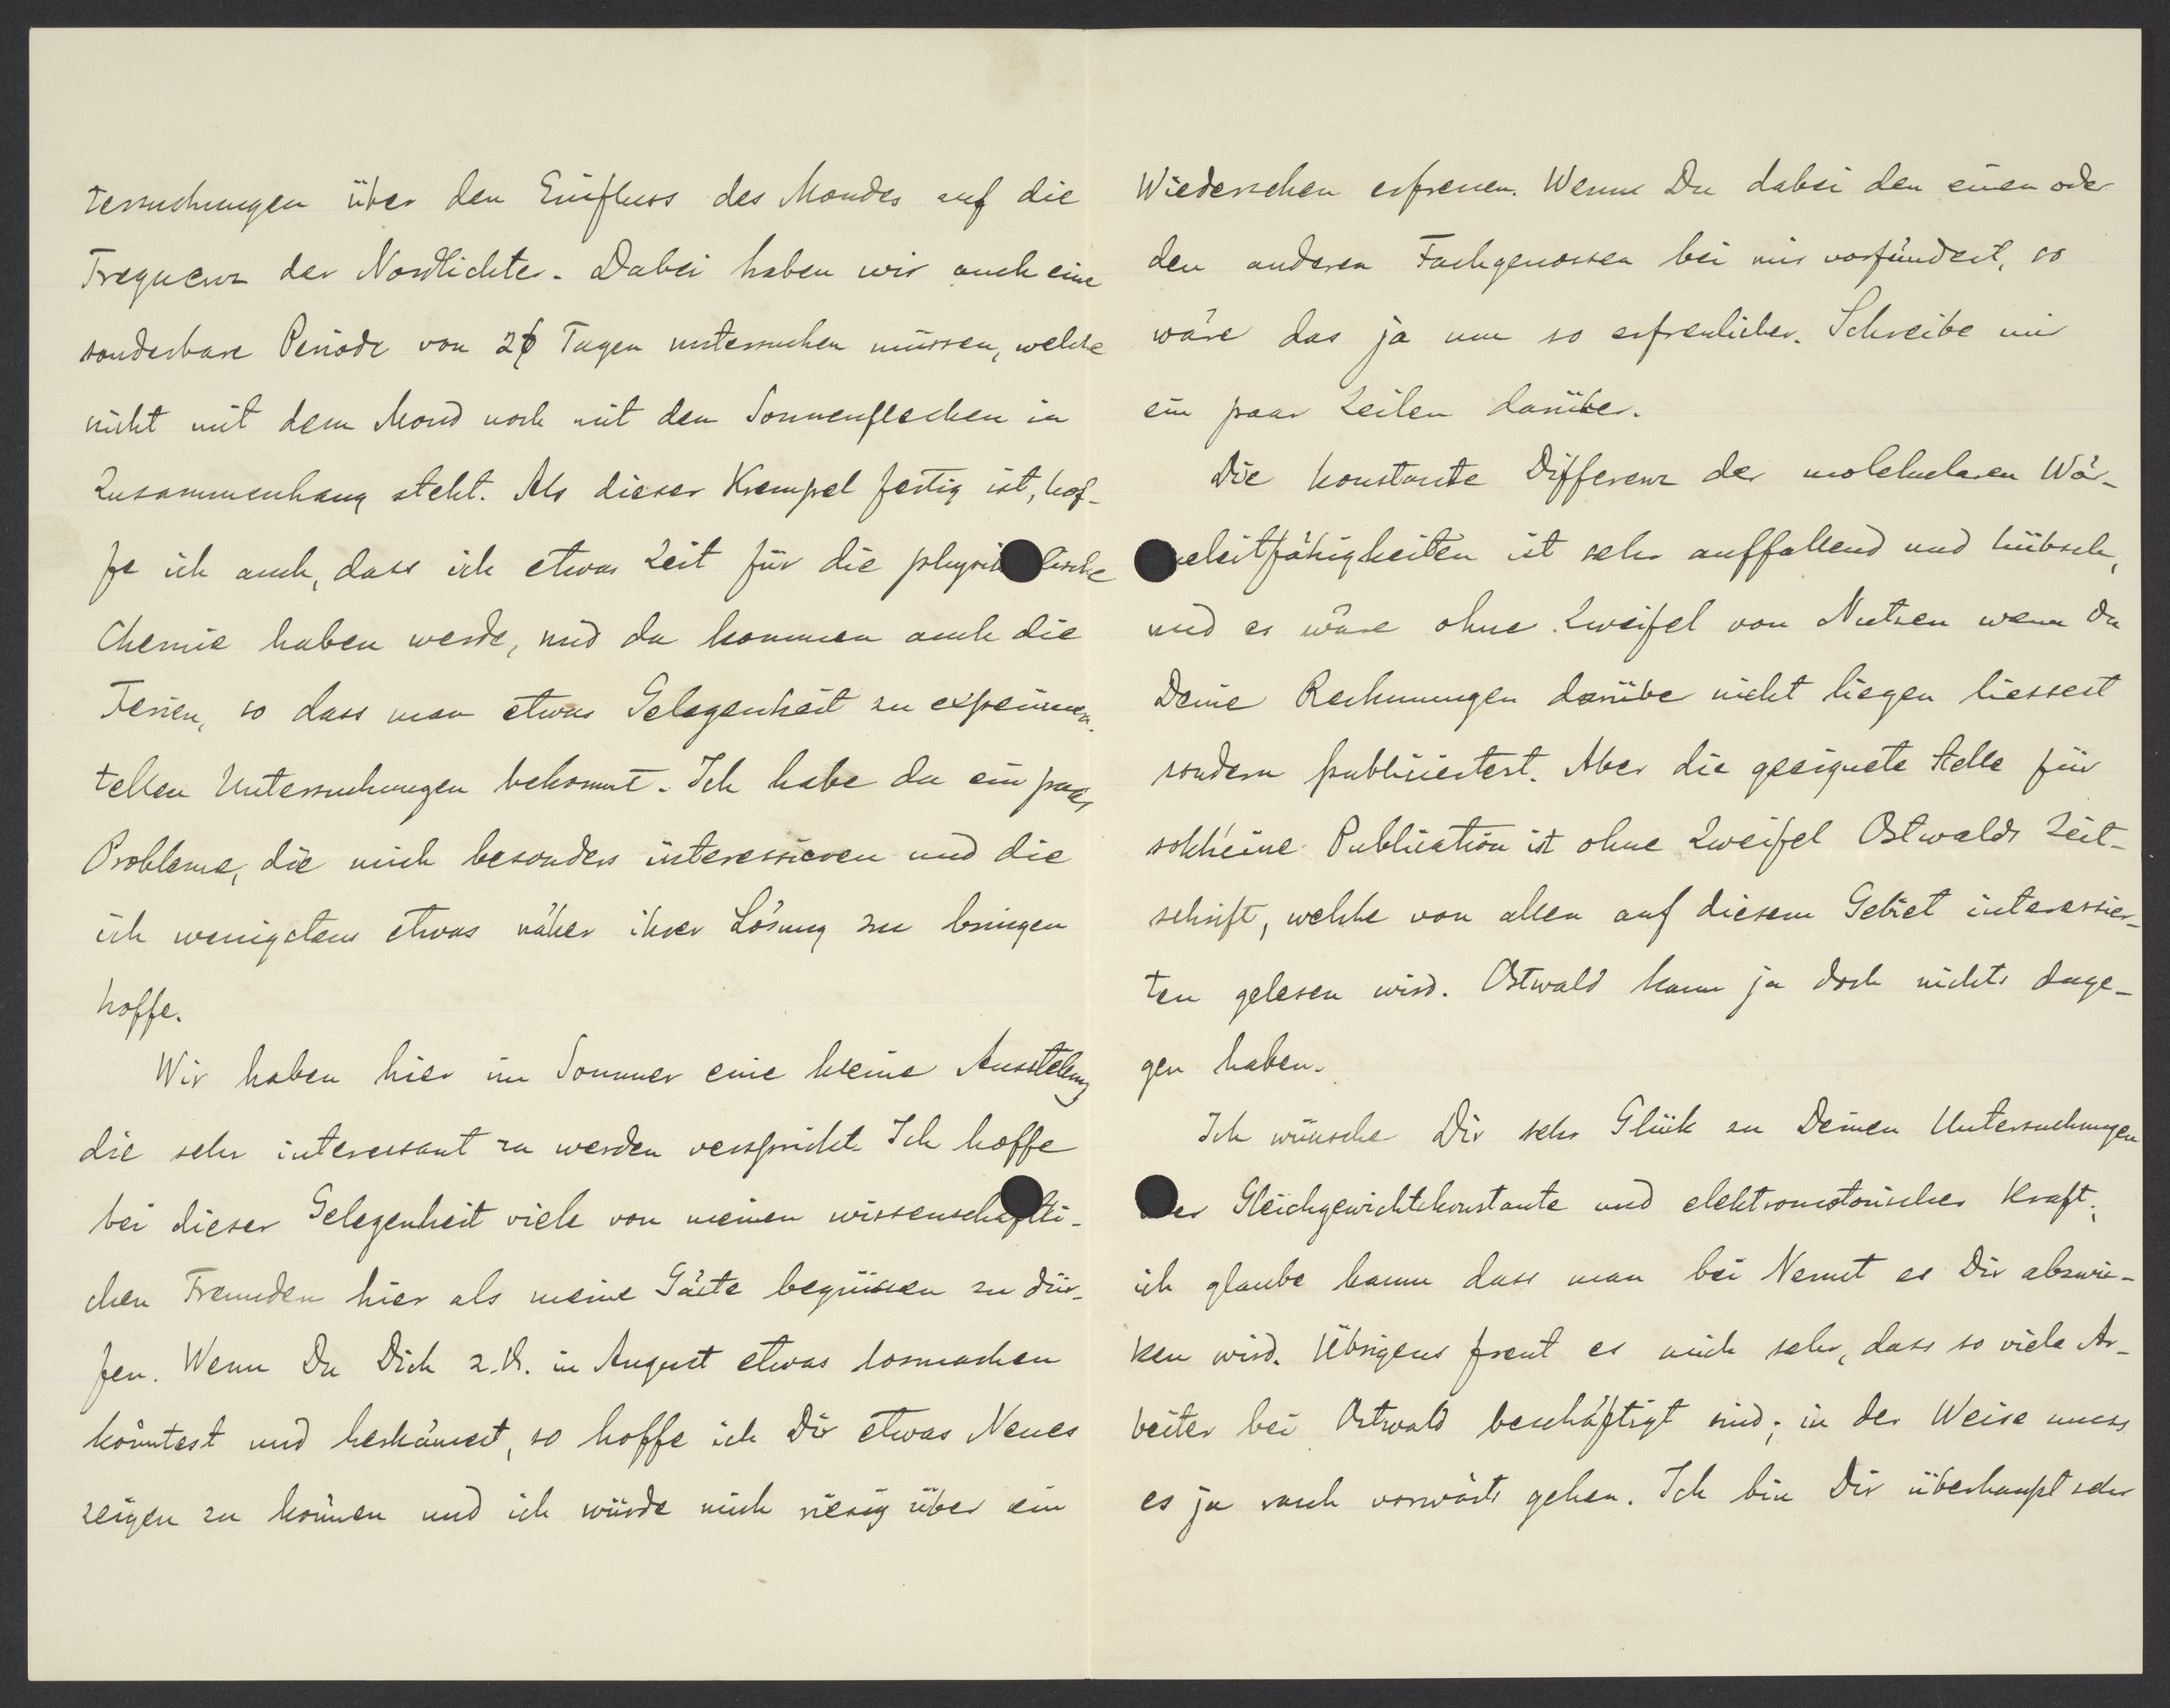 tersuchungen über den Einfluss des Mondes auf die
Frequenz der Nordlichter. Dabei haben wir auch eine
sonderbare Periode von 26 Tagen untersuchen müssen, welche
nicht mit dem Mond noch mit den Sonnenflecken in
Zusammenhang steht. Als dieser Krempel fertig ist, hof-
fe ich auch, dass ich etwas Zeit für die physik lische
Chemie haben werde, und da kommen auch die
Ferien, so dass man etwas Gelegenheit zu experimen-
tellen Untersuchungen bekommt. Ich habe da ein paar
Probleme, die mich besonders interessieren und die
ich wenigstens etwas näher ihrer Lösung zu bringen
hoffe.
Wir haben hier im Sommer eine kleine Ausstellung
die sehr interessant zu werden verspricht. Ich hoffe
bei dieser Gelegenheit viele von meinen wissenschaftli-
chen Freunden hier als meine Gäste begrüssen zu dür-
fen. Wenn Du Dich z.B. in August etwas losmachen
könntest und herkämest, so hoffe ich Dir etwas Neues
zeigen zu können und ich würde mich riesig über ein
Wiedersehen erfreuen. Wenn Du dabei den einen oder
den anderen Fachgenossen bei mir vorfündest, so
wäre das ja um so erfreulicher. Schreibe mir
ein paar Zeilen darüber.
Die konstante Differenz der molekularen Wär-
eleitfähigkeiten ist sehr auffallend und hübsch,
und es wäre ohne Zweifel von Nutzen wenn Du
Deine Rechnungen darüber nicht liegen liessest
sondern publiciertest. Aber die geeignete Stelle für
solch eine Publication ist ohne Zweifel Ostwalds Zeit-
schrift, welche von allen auf diesem Gebiet interessier-
ten gelesen wird. Ostwald kann ja doch nichts dage-
gen haben.
Ich wünsche Dir sehr Glück zu Deinen Untersuchungen
er Gleichgewichtskonstante und elektromotorischer Kraft;
ich glaube kaum dass man bei Nernst es Dir abzwi-
ken wird. Übrigens freut es mich sehr, dass so viele Ar-
beiter bei Ostwald beschäftigt sind; in der Weise muss
es ja rasch vorwärts gehen. Ich bin Dir überhaupt sehr